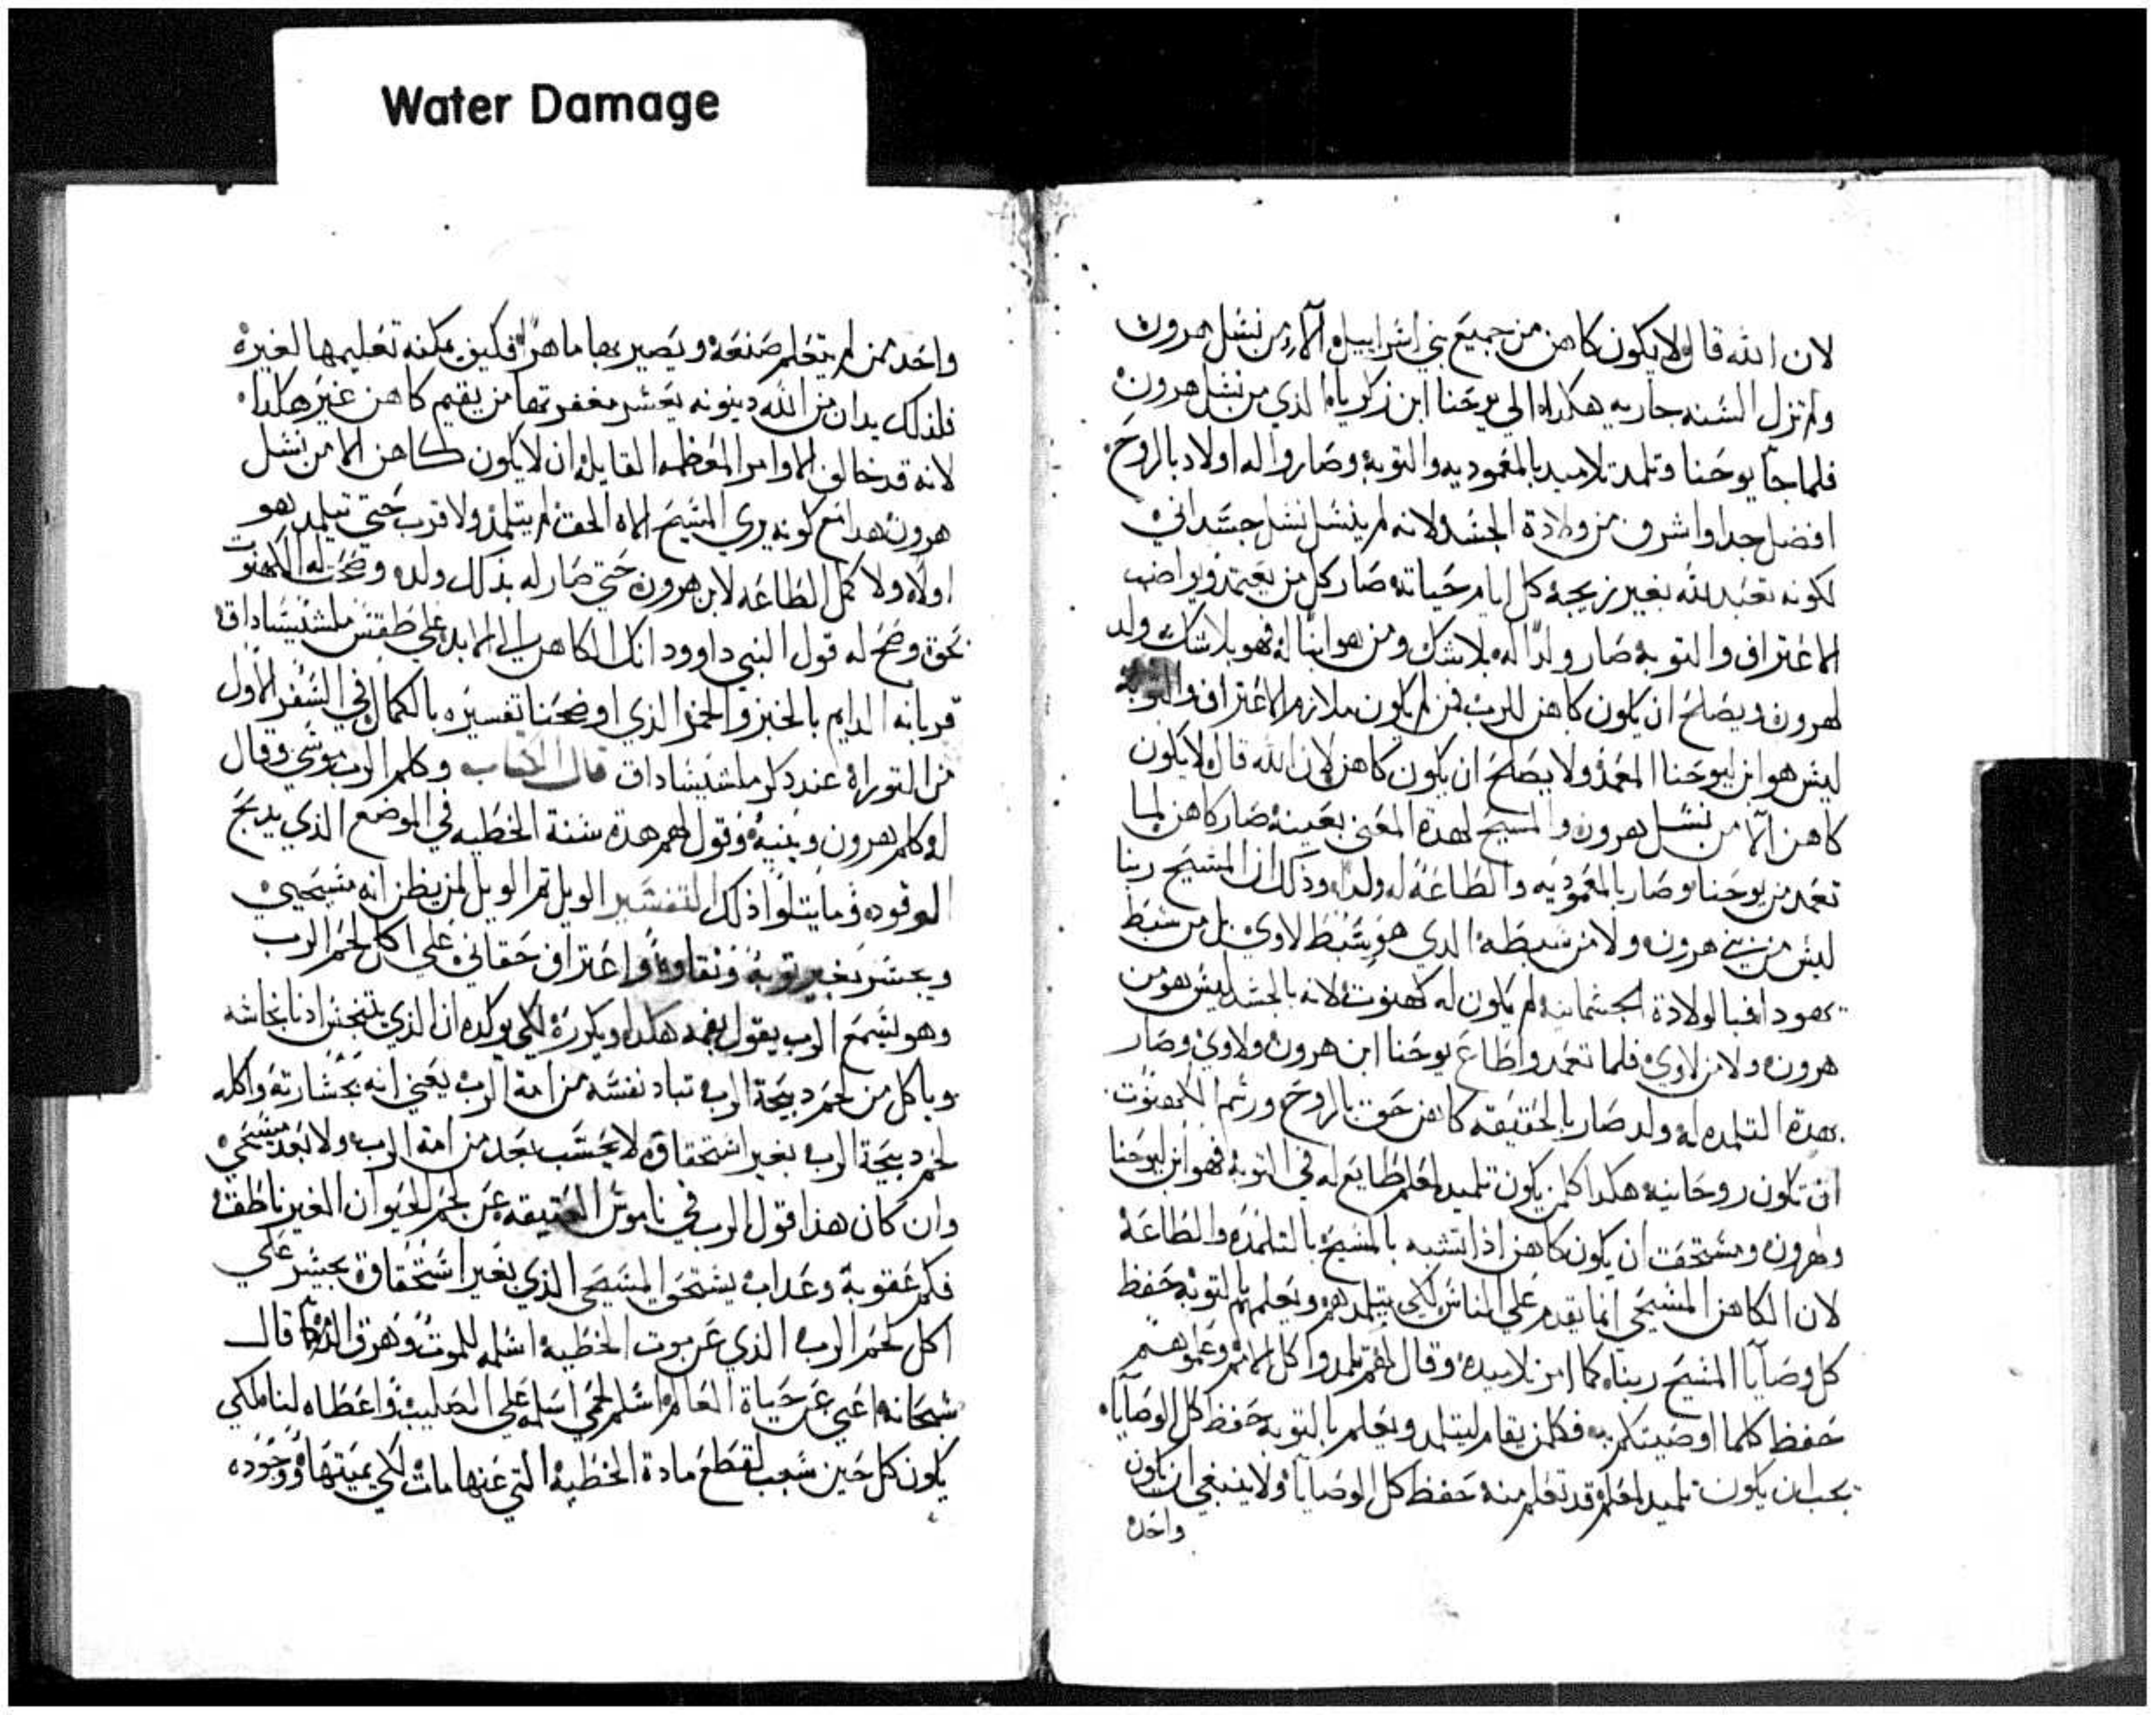 Water Damage
لان الله قال لا يكون كاهن من جميع بني اسراييل الا من نسل هرون
ولم تزل السنه جاريه هكدا الي يوحنا ابن زكريا الذي من نسل هرون
فلما جا يوحنا وتلمد تلاميد بالمعموديه والتوبة وصاروا له اولاد بالروح
افضل جدا واشرف من ولادة الجسد لانه لم ينسل نسل جسداني
لكونه تعبد لله بغير زيجة كل ايام حياته صار كل من يعتمد ويواضب
الاعتراف والتوبة صار ولدا له بلا شك ومن هو ابنا له فهو بلا شك ولد
لهرون ويصلح ان يكون كاهن للرب فمن لم يكون ملازم الاعتراف والتوبة
ليس هو ابن ليوحنا المعمد ولا يصلح ان يكون كاهن لان الله قال لا يكون
كاهن الا من نسل هرون والمسيح لهدة المعني بعينه صار كاهن لما
تعمد من يوحنا وصار بالمعموديه والطاعة له ولدا وذلك ان المسيح ربنا
ليس من بني هرون ولا من سبطه الدي هو سبط لاوي بل من سبط
يهودا فبالولادة الجسمانيه لم يكون له كهنوت لانه بالجسد ليس هو من
هرون ولا من لاوي فلما تعمد واطاع يوحنا ابن هرون ولاوي وصار
بهدة التلمده له ولد صار بالحقيقه كاهن حق بالروح ورسم الكهنوت
ان تكون روحانيه هكدا كلمن يكون تلميد لمعلم طايع له في التوبة فهو ابن ليوحنا
ولهرون ومستحق ان يكون كاهن اذا تشبه بالمسيح بالتلمده والطاعة
لان الكاهن المسيحي انما يقدم علي الناس لكي يتلمدهم ويعلمهم بالتوبة حفظ
كل وصايا المسيح ربنا كما امر تلاميده وقال لهم تلمدوا كل الامم وعموهم
حفظ كلما اوصيتكم به فكلمن يقام ليتلمد ويعلم بالتوبة حفظ كل الوصايا
يجب ان يكون تلميد لمعلم قد تعلم منه حفظ كل الوصايا ولا ينبغي ان يكون
واحد
واحد ممن لم يتعلم صنعة ويصير بها ماهرا فكيف يمكنه تعليمها لغيره
فلذلك يدان من الله دينونه يعسر مغفرتها من يقيم كاهن غير هكدا
لانه قد خالف الاوامر المعظمه القايله ان لا يكون كاهن الا من نسل
هرون هدا مع كونه يري المسيح الاه الحق لم يتلمد ولا قرب حتي تتلمد هو
اولا ولا كمل الطاعه لابن هرون حتي صار له بذلك ولد وصحت له الكهنوت
بحق وصح له قول النبي داوود انك الكاهن الي الابد علي طقس ملشيساداق
قربانه الدايم بالخبز والخمر الذي اوضحنا تفسيره بالكمال في السفر الاول
من التوراة عند دكر ملشيساداق قال الكتاب وكلم الرب موسي وقال
له كلم هرون وبنيه وقول لهم هدة سنة الخطيه في الموضع الذي يدبح
الوقود وما يتلوا ذلك التفسير الويل ثم الويل لمن يظن انه مسيحي
ويجسر بغير توبة ونقاوة واعتراف حقاني علي اكل لحم الرب
وهو يسمع الرب يقول بفمه هكدا ويكرره لكي يوكده ان الذي يتنجس ادنا نجاسه
وياكل من لحم دبيحة الرب تباد نفسه من امة الرب يعني انه بجسارته واكله
لحم دبيحة الرب بغير استحقاق لا يحسب بعد من امة الرب ولا يعد مسيحي
وان كان هذا قول الرب في ناموس العتيقه عن لحم الحيوان الغير ناطق
فكم عقوبة وعداب يستحق المسيحي الذي بغير استحقاق يجسر علي
اكل لحم الرب الذي عن موت الخطيه اسلمه للموت وهرق الدم كما قال
سبحانه اعني عن حياة العالم اسلم لحمي اسلمه علي الصليب واعطاه لنا لكي
يكون كل حين سبب لقطع مادة الخطيه التي عنها مات لكي يميتها ووجوده